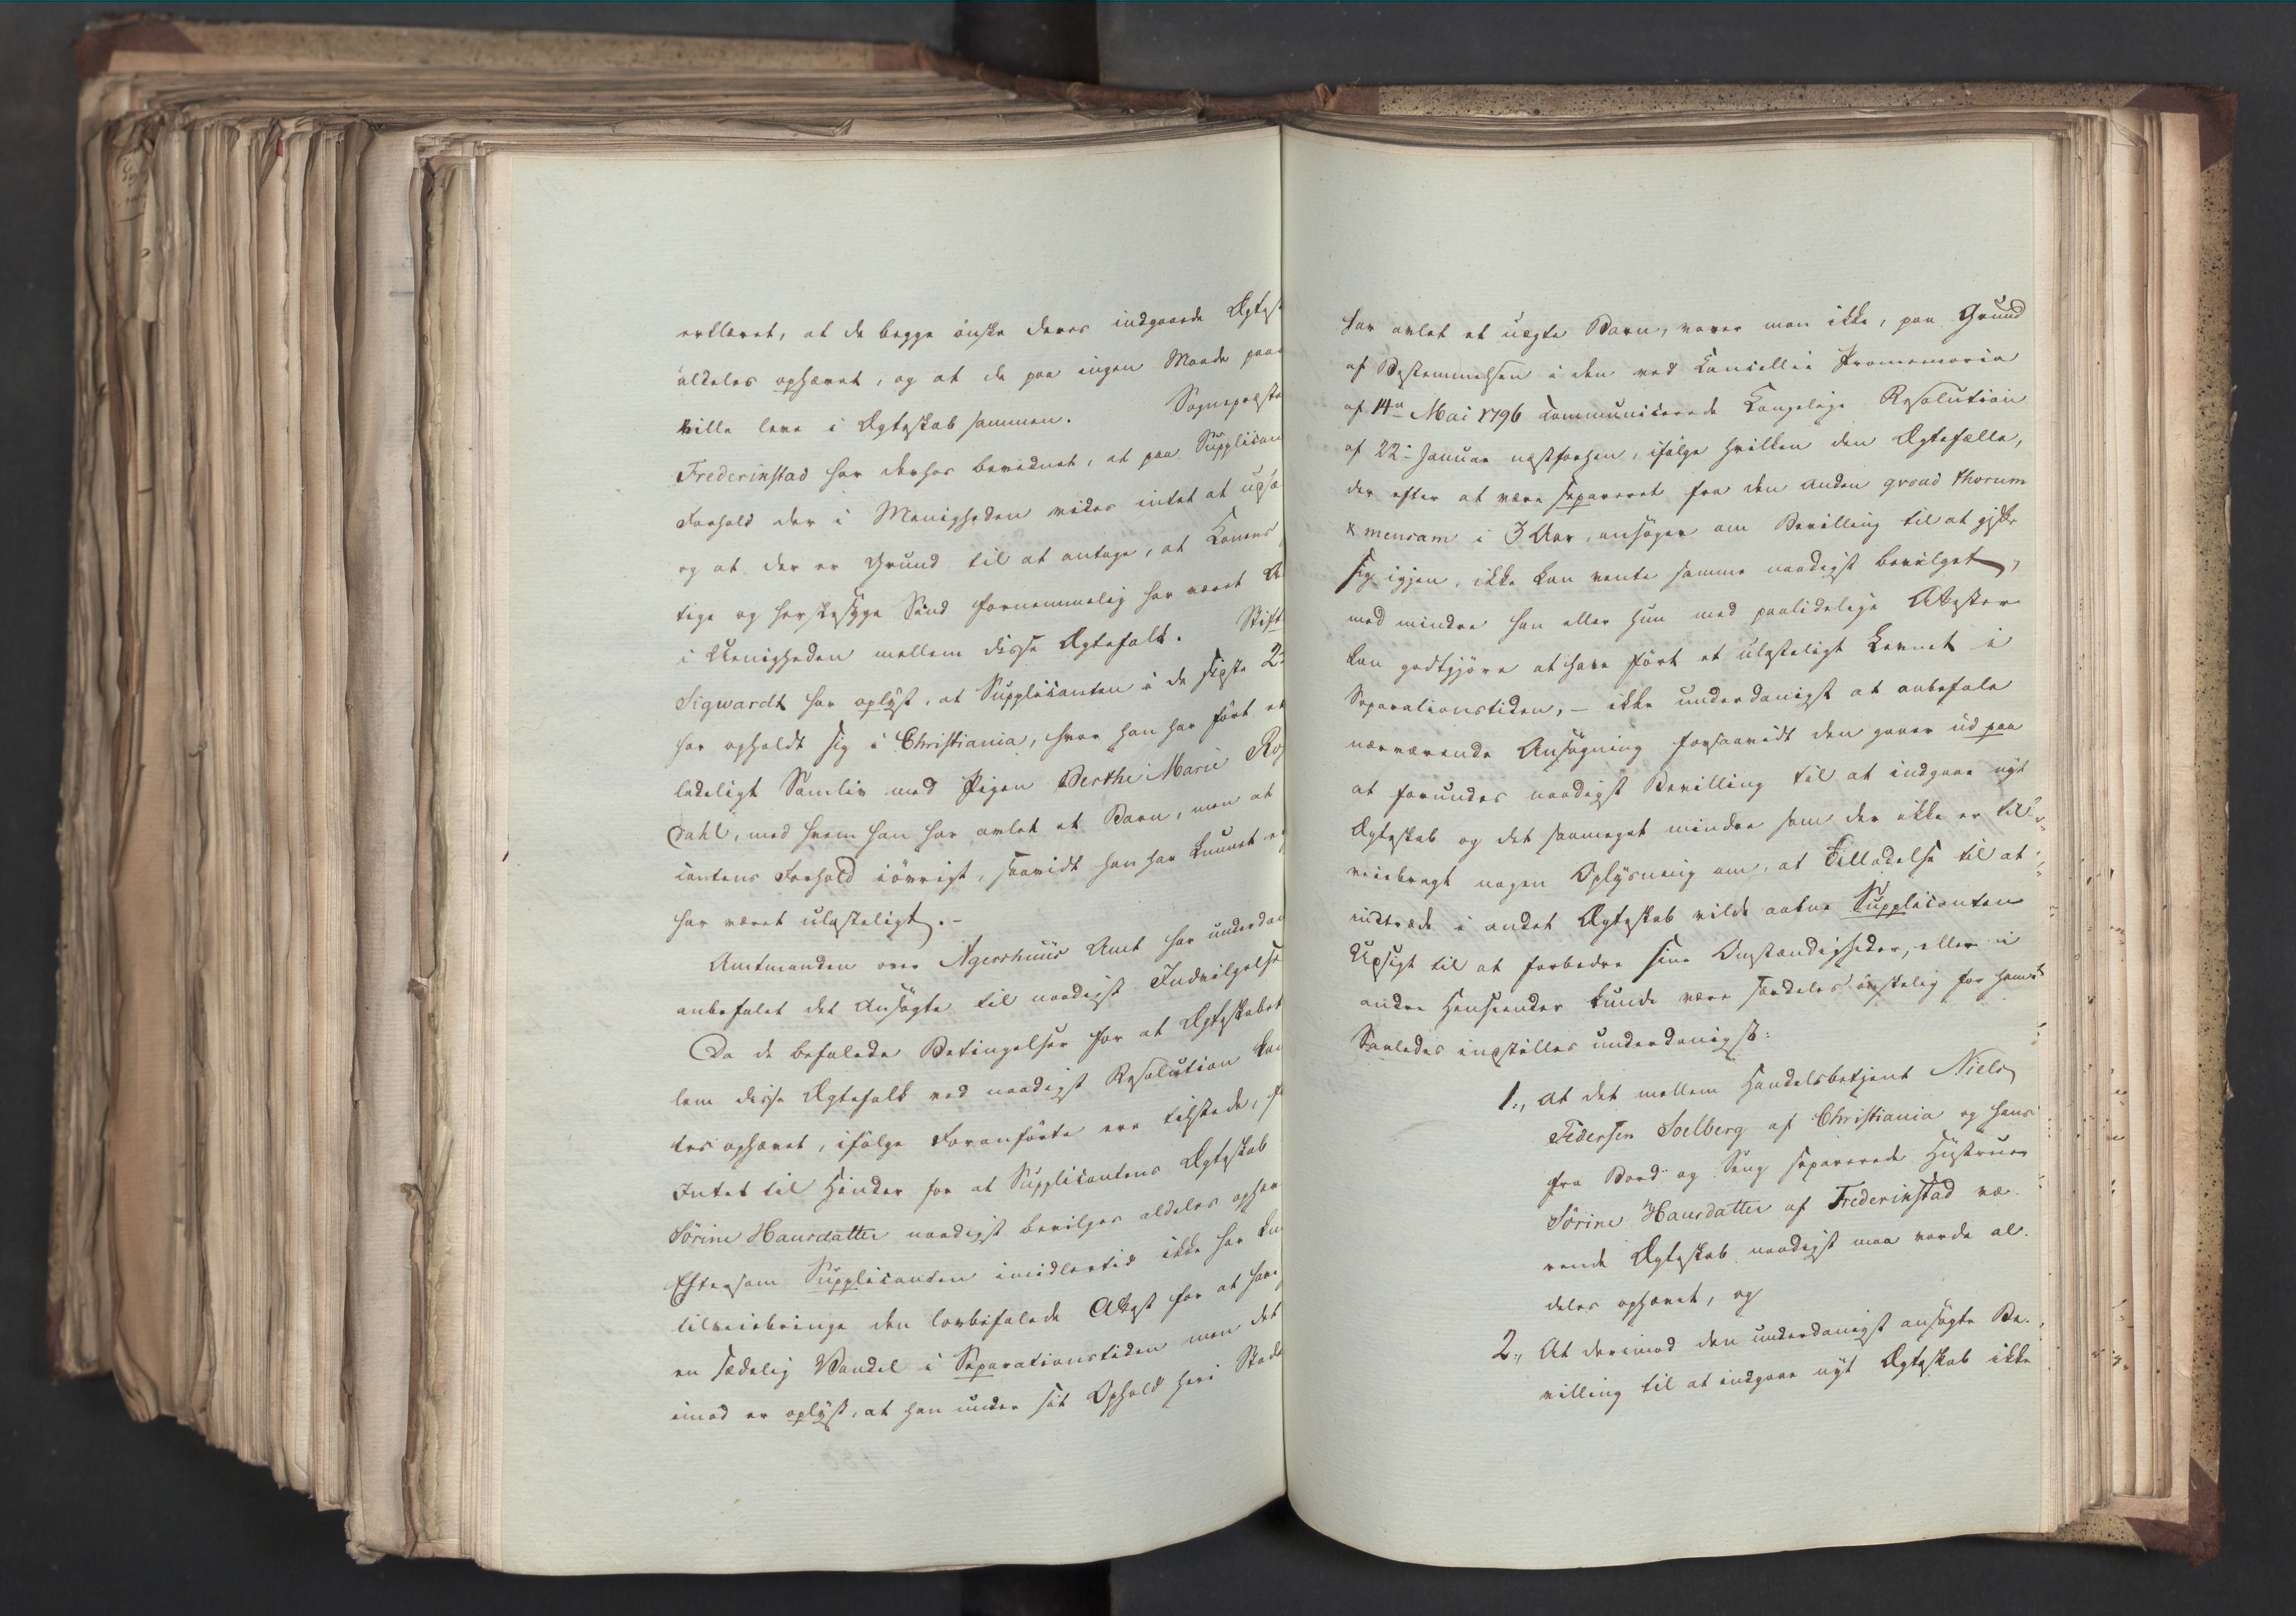 erklæret, at de begge ønske deres indgaaede Ægtesk
aldeles ophævet, og at de paa ingen Maade paa
ville leve i Ægteskab sammen. Sognepræste
Frederikstad har derhos bevidnet, at paa Supplican
Forhold der i Menigheden vides intet at udsæ
og at der er Grund til at antage, at Konens
tige og herskesyge Sind fornemmelig har været A
i Uenigheden mellem disse Ægtefolk. Stift
Sigwardt har oplyst, at Supplicanten i de sidste 2
har opholdt sig i Christiania, hvor han har ført et
ledeligt Samliv med Pigen Berthe Marie Ros
dahl, med hvem han har avlet et Barn, men at
cantens Forhold iøvrigt, saavidt han har kunnet er
har været ulasteligt.-
Amtmanden over Agershuus Amt har underdan
anbefalet det Ansøgte til naadigst Indvilgelse
Da de befalede Betingelser for at Ægteskabet
lem disse Ægtefolk ved naadigst Resolution kan
des ophævet, ifølge Foranførte ere tilstede, f
Intet til Hinder for at Supplicantens Ægteskab
Sørine Hansdatter naadigst bevilges aldeles ophæv
Eftersom Supplicanten imidlertid ikke har kun
tilveiebringe den lovbefalede Attest for at have
en sædelig Vandel i Separationstiden men det
imod er oplyst, at han under sit Ophold heri Stade
har avlet et uægte Barn, vover man ikke, paa Grund
af Bestemmelsen i den ved Cancellie Promemoria
af 14n Mai 1796 communicerede Kongelige Resolution
af 22- Januar næstforhen, ifølge hvilken den Ægtefælle,
der efter at være separeret fra den anden qvoad thorum
& mensam i 3 Aar, ansøger om Bevilling til at gifte
sig igjen, ikke kan vente samme naadigst bevilget,
med mindre han eller hun med paalidelige Attester
kan godtgjøre at have ført et ulasteligt Levnet i
Separationstiden, - ikke underdanigst at anbefale
nærværende Ansøgning forsaavidt den gaaer ud paa
at forundes naadigst Bevilling til at indgaae nyt
Ægteskab og det saameget mindre som der ikke er til-
veiebragt nogen Oplysning om, at Tilladelse til at
indtræde i andet Ægteskab vilde aabne Supplicanten
Udsigt til at forbedre sine Omstændigheder, eller i
andre Henseender kunde være særdeles ønskelig for ham
Saaledes indstilles underdanigst:
1., at det mellem Handelsbetjent Niels
Pedersen Solberg af Christiania og hans
fra Bord og Seng separerede Hustrue
Sørine Hansdatter af Frederikstad væ-
rende Ægteskab naadigst maa vorde al-
deles ophævet, og
2., At derimod den underdanigst ansøgte Be-
villing til at indgaae nyt Ægteskab ikke